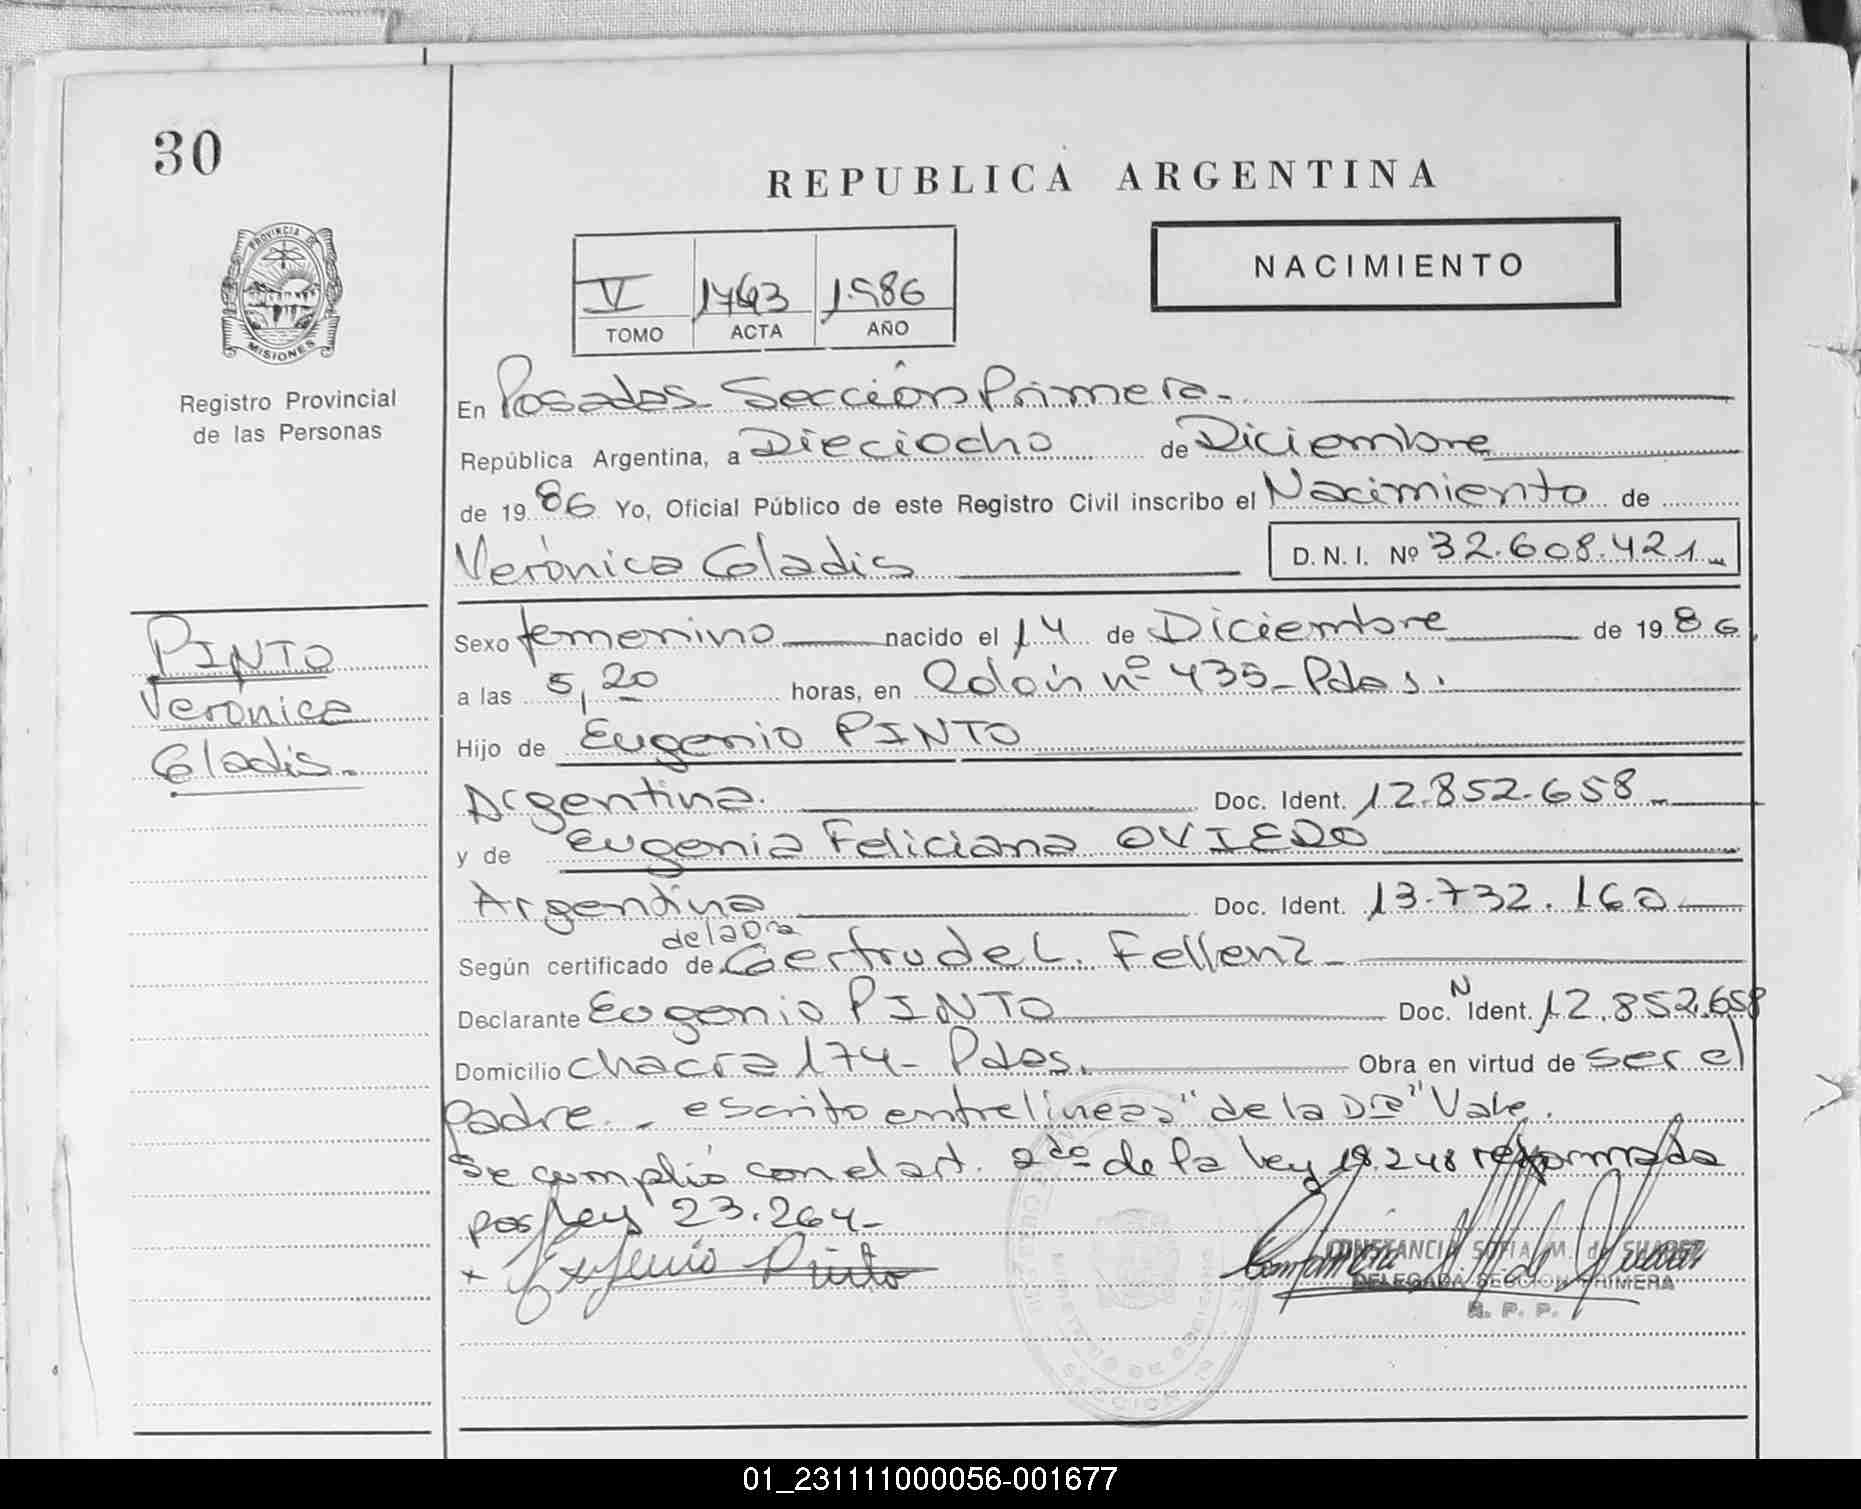 30
REPUBLICA ARGENTINA
PROVINCIA DE
MISIONES
Registro Provincial
de las Personas
V 1743 1986
TOMO ACTA AÑO
NACIMIENTO
En Posadas Sección Primera.
República Argentina, a Dieciocho de Diciembre
de 1986 Yo, Oficial Público de este Registro Civil inscribo el Nacimiento de
Verónica Gladis D. N. I. Nº 32.608.421
PINTO
Verónica
Gladis.
Sexo femenino nacido el 14 de Diciembre de 1986
a las 5,20 horas, en Colón nº 435 - Pdas.
Hijo de Eugenio PINTO
Argentina. Doc. Ident. 12.852.658
y de Eugenia Feliciana OVIEDO
Argentina Doc. Ident. 13.732.160
de la Dra
Según certificado de Gertrude L. Fellenz
Declarante Eugenio PINTO Doc. N Ident. 12.852.658
Domicilio chacra 174 - Pdas. Obra en virtud de ser el
padre. - escrito entrelineas "de la Dra" Vale.
Se cumplió con el art. 2do de la ley 18.248 reformada
por ley 23.264 -
x Eugenio Pinto
CONSTANCIA SOFIA M. de SUAREZ
DELEGADA SECCION PRIMERA
R. P. P.
01_231111000056-001677